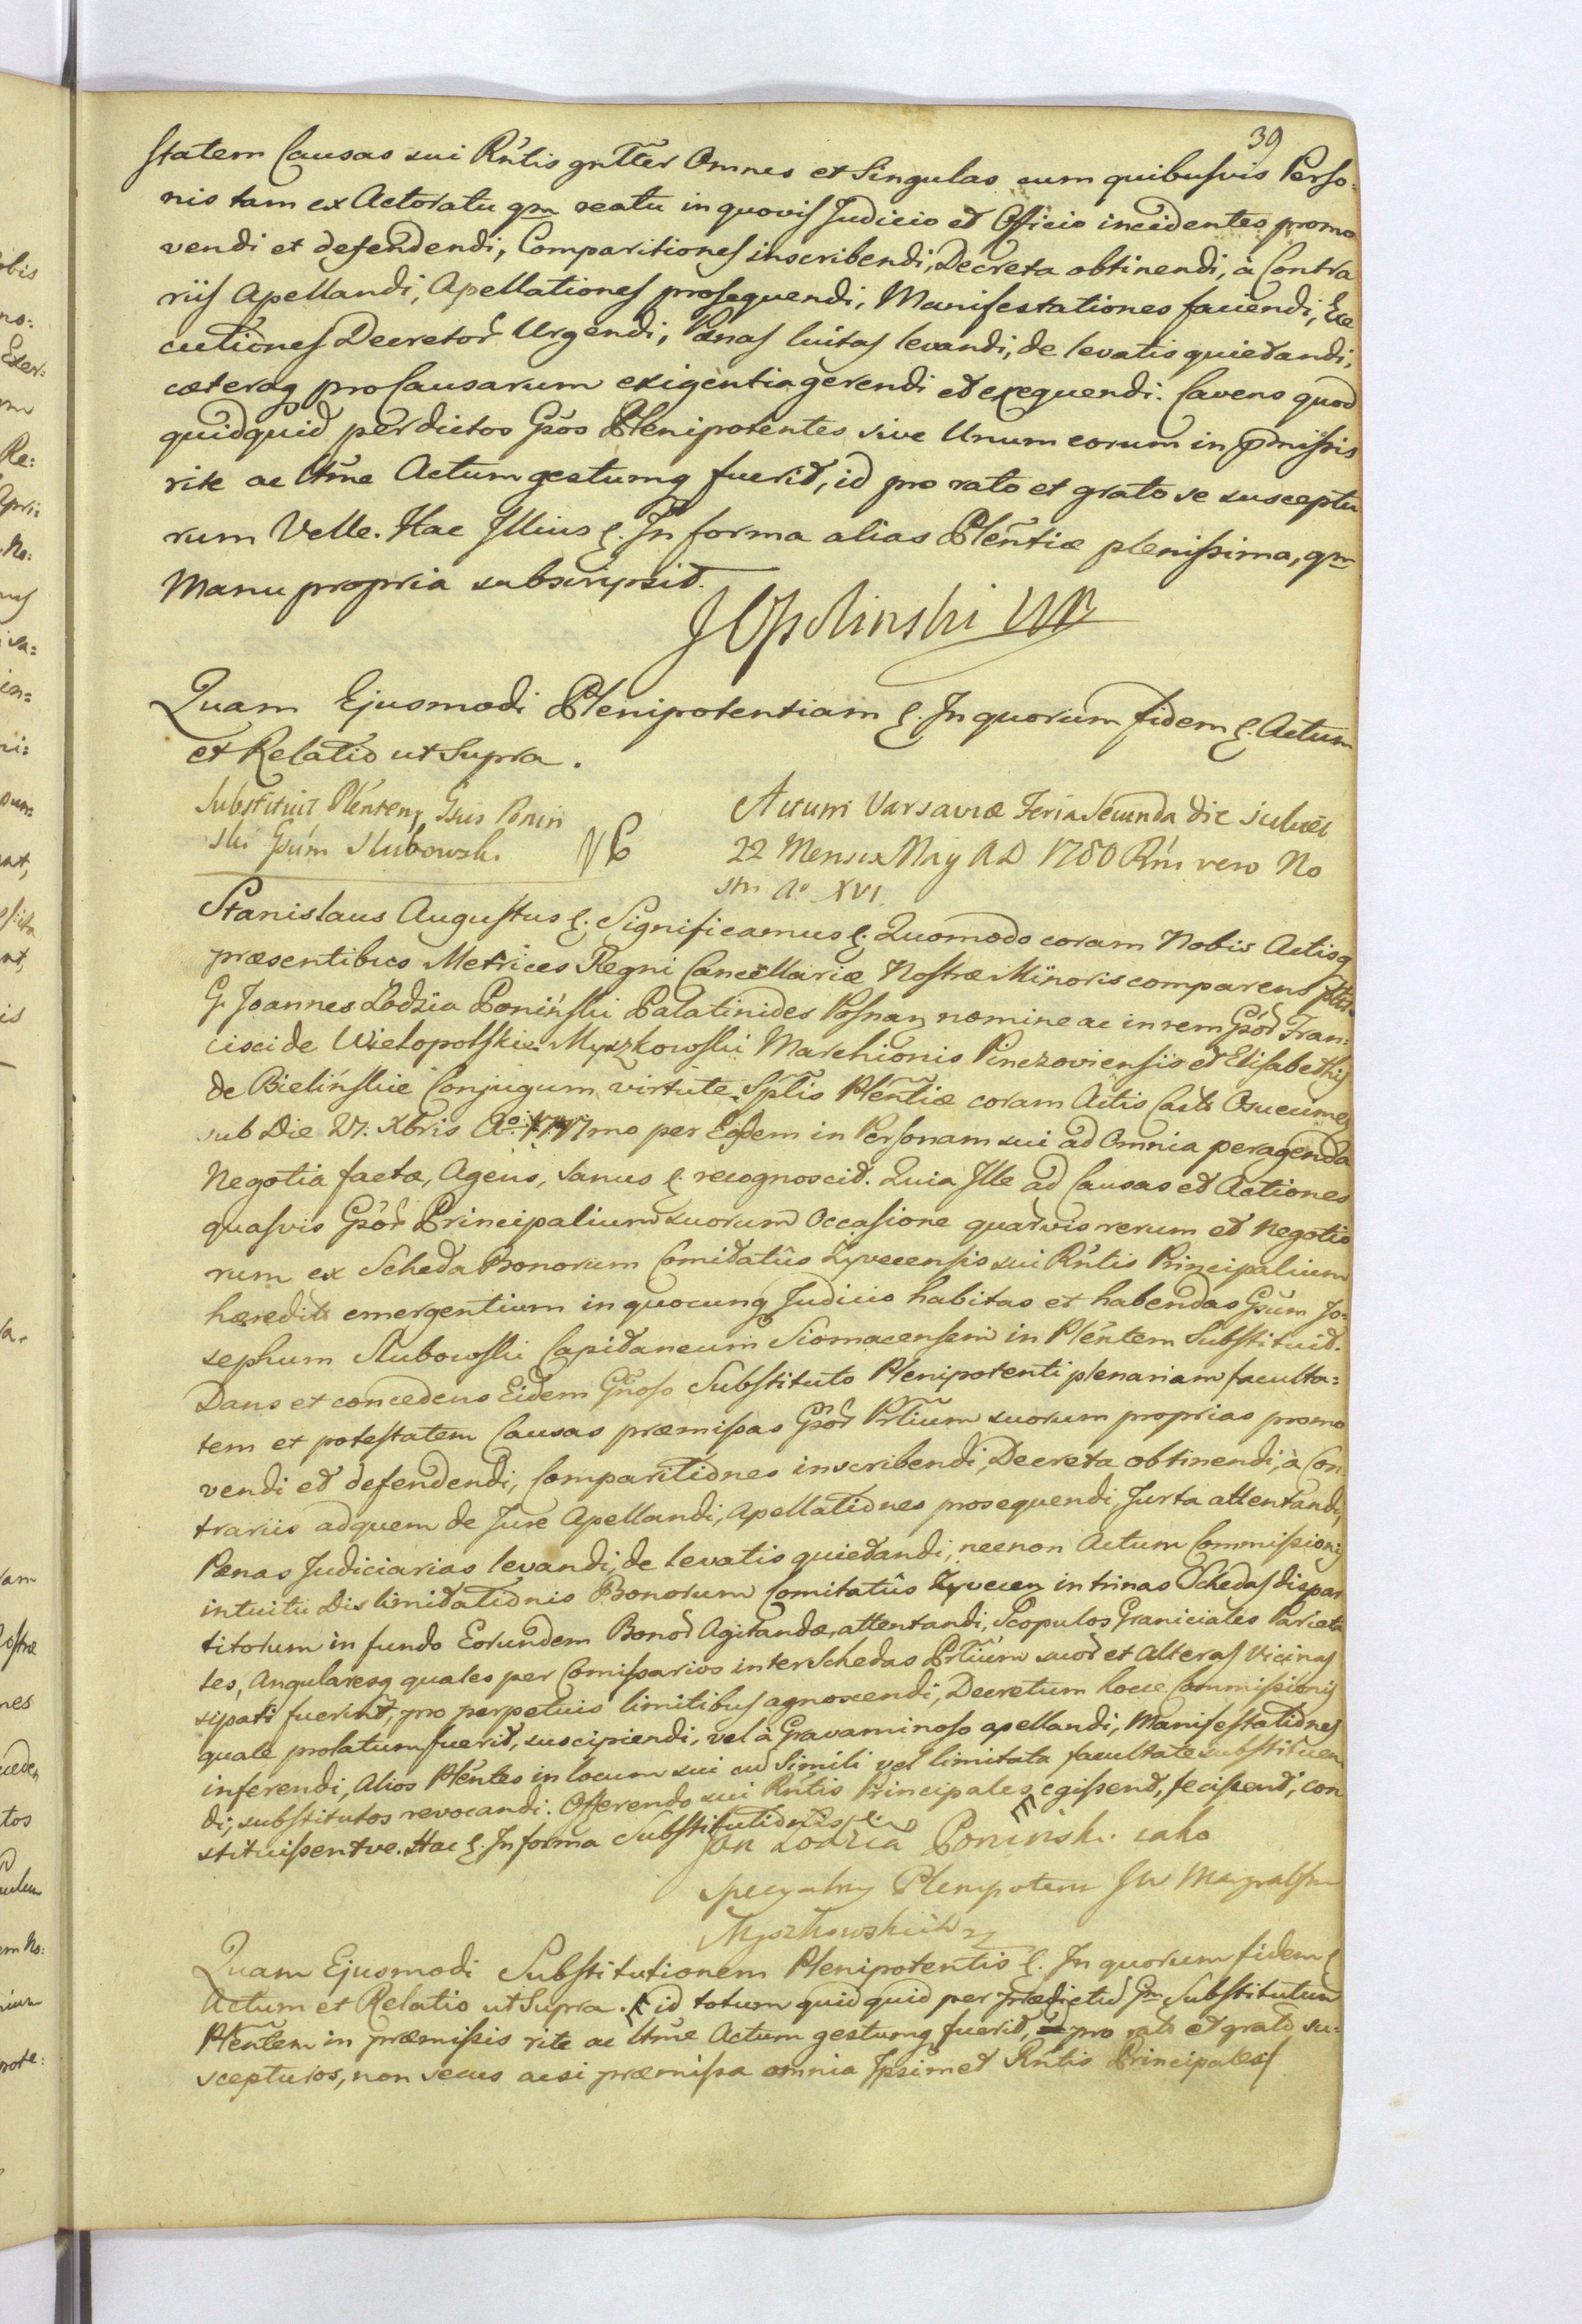 39
statem Causas sui Rntis gnlter Omnes et Singulas cum quibusvis Perso:
nis tam ex Actoratu qm reatu in quovis Judicio et Officio incidentes promo
vendi et defendendi, Comparitiones inscribendi, Decreta obtinendi, à Contra
riis Apellandi, Apellationes prosequendi, Manifestationes faciendi, Exe
cutiones Decretor Urgendi, Pænas luitas levandi, de levatis quietandi,
cæteraq pro Causarum exigentia gerendi et exequendi. Cavens quod
quidquid per dictos Gsos Plenipotentes sive Unum eorum in pmissis
rite ac ltme Actum gestumq fuerit, id pro rato et grato se susceptu
rum Velle. Hac Illius &. In forma alias Plentiæ plenissima, qm
Manu propria subscripsit.
J Opolinski
Quam Ejusmodi Plenipotentiam &. In quorum fidem &. Actum
et Relatio ut Supra.
Substituit Plentem Gsus Ponin
ski Gsum Slubowski
Actum Varsaviæ Feria Secunda die scilicet
22 Mensis May AD 1780 Rni vero No
stri Ao XVI
Stanislaus Augustus &. Significamus &. Quomodo coram Nobis Actisq
præsentibus Metrices Regni Cancellariæ Nostræ Minoris comparens pltr
G. Joannes Łodzia Poniński Palatinides Posnan nomine ac in rem Gsor Fran:
cisci de Wielopolskie Myszkowski Marchionis Pinczoviensis et Elisabethis
de Bielińskie Conjugum, virtute Splis Plentiæ coram Actis Castr Osviecimen
sub Die 27. Xbris Ao 1777mo per Eosdem in Personam sui ad Omnia peragenda
Negotia factæ, Agens, sanus &. recognoscit. Quia Ille ad Causas et Actiones
quasvis Gsor Principalium suorum Occasione quarvis rerum et Negotio
rum ex Scheda Bonorum Comitatûs Zyvecensis sui Rntis Principalium
hæredit emergentium in quocunq Judicio habitas et habendas Gsum Jo:
sephum Slubowski Capitaneum Siomacensem in Plentem Substituit.
Dans et concedens Eidem Gnoso Substituto Plenipotenti plenariam faculta:
tem et potestatem Causas præmissas Gsor Prlium suorum proprias promo
vendi et defendendi, Comparitiones inscribendi, Decreta obtinendi, à Con
trariis ad quem de Jure Apellandi, Apellationes prosequendi, Jurta attentandi,
Pænas Judiciarias levandi, de levatis quietandi, necnon Actum Commissionis
intuitu Dislimitationis Bonorum Comitatûs Zyvecen in trinas Schedas dispar
titorum in fundo Eorundem Bonor Agitandæ, attentandi, Scopulos Graniciales Parieta
les, Angularesq quales per Comissarios inter Schedas Prlium suor et Alteras Vicinas
sipati fuerint, pro perpetuis limitibus agnoscendi, Decretum hocce Commissionis
quale prolatum fuerit, suscipiendi, vel à Gravaminoso apellandi, Manifestationes
inferendi, Alios Plentes in locum sui cu simili vel limitata facultate substituen
di, substitutos revocandi. Offerendo sui Rntis Principales egissent, fecissent, con
stituissentve. Hac &. In forma Substitutionis &.
Jan Łodzia Poninski iako
specyalny Plenipotent JW Margrabstwa
Myszkowskich
Quam Ejusmodi Substitutionem Plenipotentis &. In quorum fidem &
Actum et Relatio ut Supra. id totum quidquid per prædictu Gm Substitutum
Plentem in præmissis rite ac ltme Actum gestumq fuerit, pro rato et grato su:
scepturos, non secus ac si præmissa omnia Ipsimet Rntis Principales